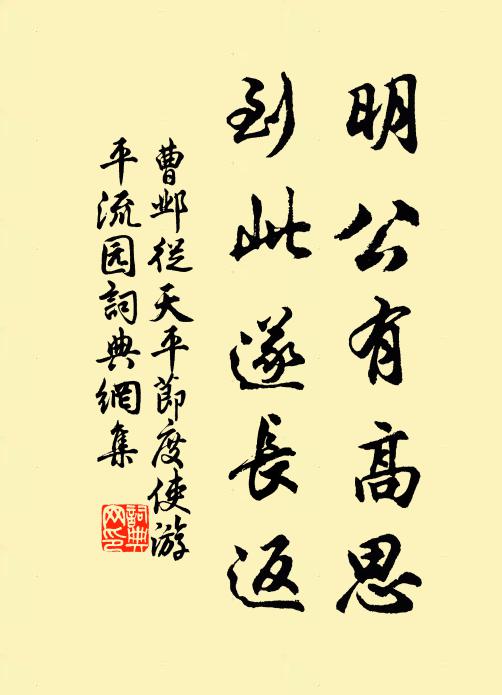 明公有高思
到此遂長返
曹邺從天平節度使游
平流园詞典網集
詞典
网印